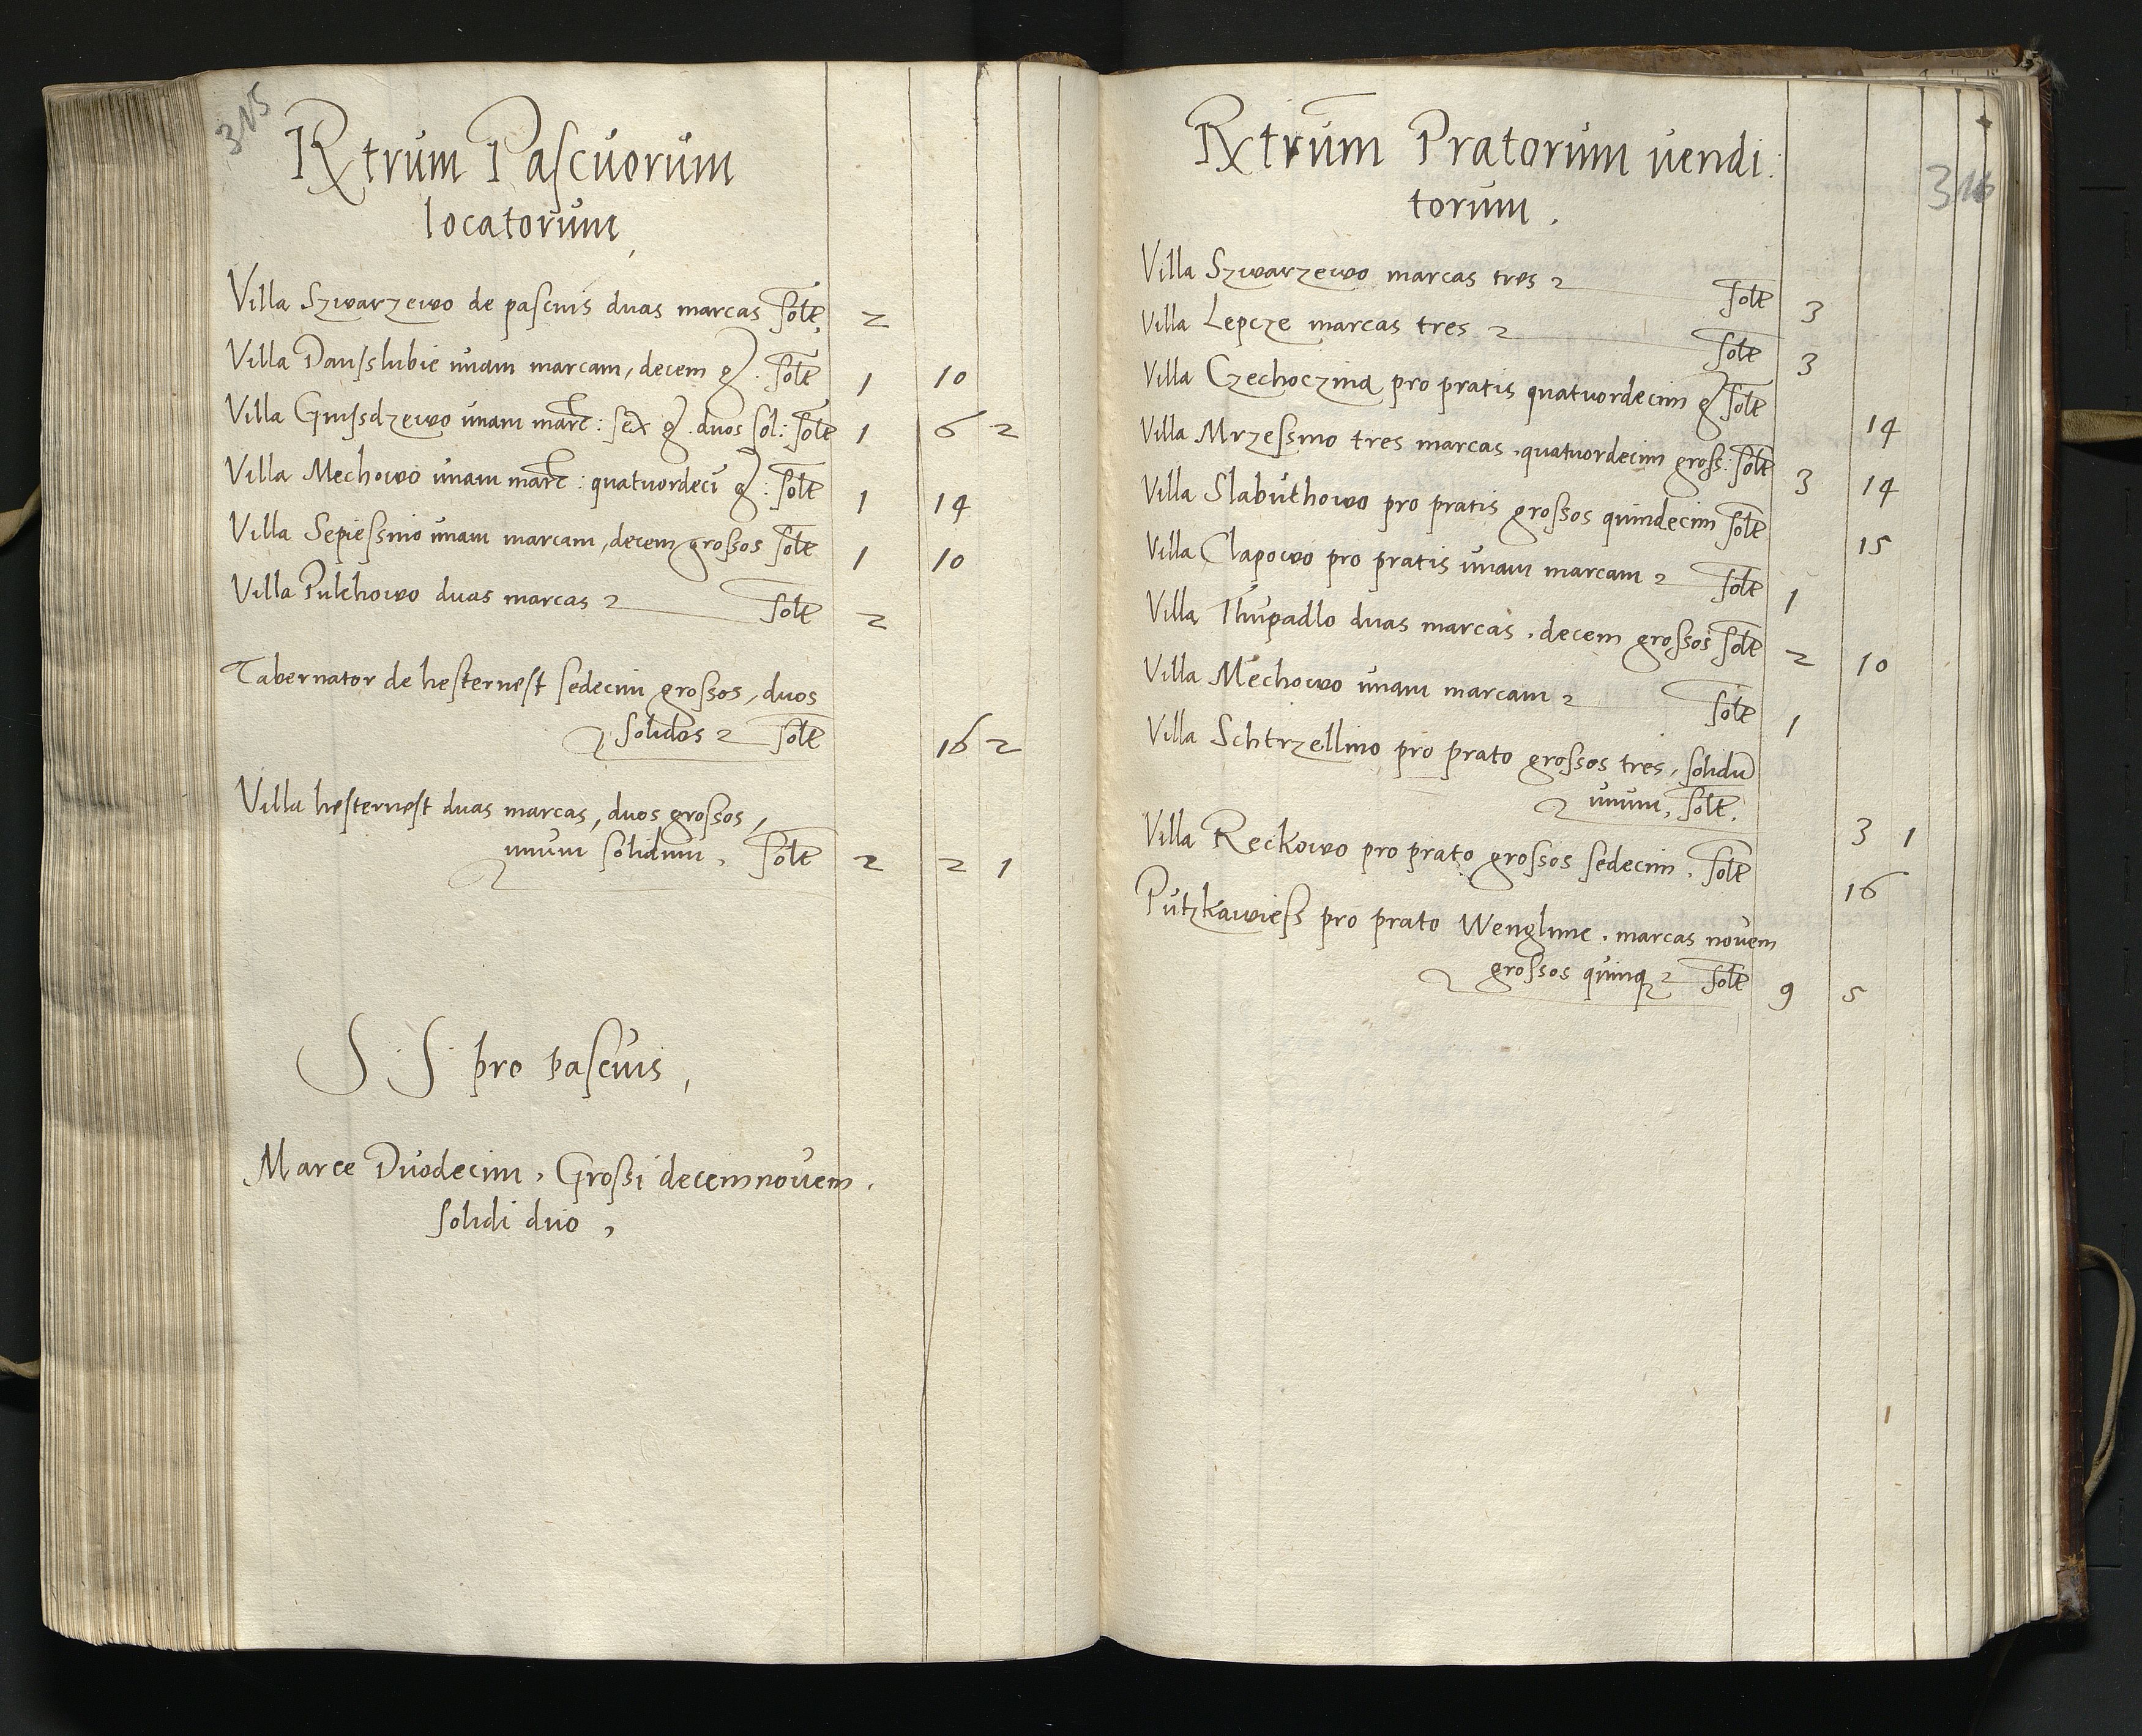 315
Rxtrum Pascuorum
locatorum,
Villa Szwarzewo de pascuis duas marcas solt, 2
Villa Danslubie unam marcam, decem g. solt 1 10
Villa Gnissdzewo unam marc: sex g. duos sol: solt 1 6 2
Villa Mechowo unam marc: quatuordeci g: solt 1 14
Villa Sepiessino unam marcam, decem grossos solt 1 10
Villa Pulchowo duas marcas solt 2
Tabernator de hesternest sedecim grossos, duos
solidos solt 16 2
Villa hesternest duas marcas, duos grossos,
unum solidum, solt 2 2 1
S S pro pascuis,
Marce Duodecim, Grossi decemnovem.
solidi duo,
316
Rxtrum Pratorum vendi:
torum.
Villa Szwarzewo marcas tres solt 3
Villa Lepcze marcas tres solt 3
Villa Czechoczina pro pratis quatuordecim g solt 14
Villa Mrzessino tres marcas, quatuordecim gross: solt 3 14
Villa Slabuthowo pro pratis grossos quindecim solt 15
Villa Clapowo pro pratis unam marcam solt 1
Villa Thupadlo duas marcas, decem grossos solt 2 10
Villa Mechowo unam marcam solt 1
Villa Schtrzellino pro prato grossos tres, solidu
unum, solt. 3 1
Villa Reckowo pro prato grossos sedecim. solt 16
Putzkawiess pro prato Wenglinie, marcas novem
grossos quinq solt 9 5